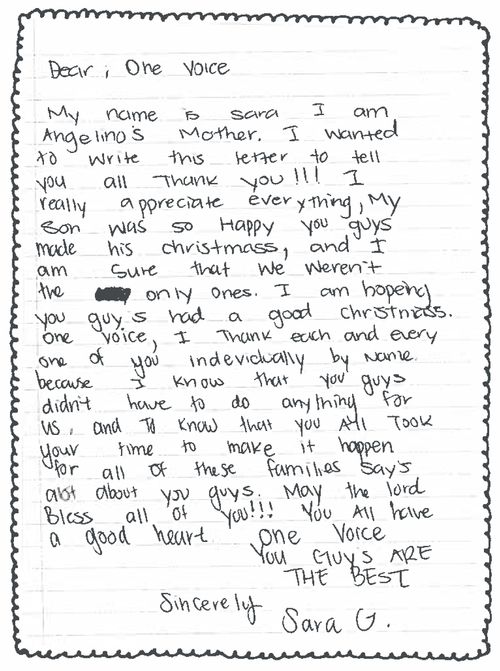 Dear, One Voice
My name is sara I am
Angelino's Mother. I wanted
to write this letter to tell
you all Thank you!!! I
really appreciate everything, My
Son was so Happy you guys
made his christmass, and I
am Sure that we weren't
the only ones. I am hopeing
you guy's had a good christmass.
One voice, I Thank each and every
one of you indevidually by Name.
because I know that you guys
didn't have to do anything for
us, and To know that you All Took
your time to make it happen
for all of these families say's
alot about you guys. May the lord
Bless all of you!!! You All have
a good heart. One Voice
You Guy's ARE
THE BEST
Sincerely
Sara G.